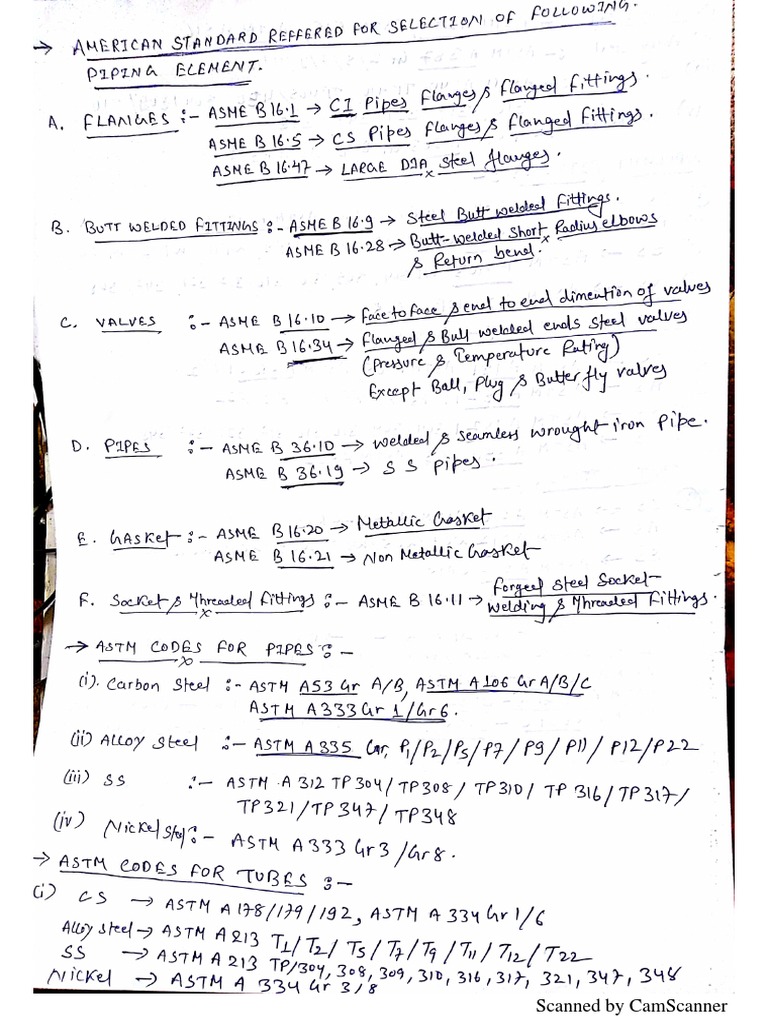 → AMERICAN STANDARD REFFERED FOR SELECTION OF FOLLOWING.
PIPING ELEMENT.
A. FLANGES :- ASME B 16.1 → CI Pipes flanges & flanged fittings.
ASME B 16.5 → CS Pipes flanges & flanged fittings.
ASME B 16.47 → LARGE DIA steel flanges.
B. BUTT WELDED FITTINGS :- ASME B 16.9 → Steel Butt welded fittings.
ASME B 16.28 → Butt-welded short Radius elbows
& Return bend.
C. VALVES :- ASME B 16.10 → Face to face & end to end dimention of valves
ASME B 16.34 → flanged & Butt welded ends steel valves
(Pressure & Temperature Rating)
Except Ball, Plug & Butterfly valves
D. PIPES :- ASME B 36.10 → welded & seamless wrought iron pipe.
ASME B 36.19 → S S pipes.
E. Gasket :- ASME B 16.20 → Metallic Gasket
ASME B 16.21 → Non Metallic Gasket
F. Socket & Threaded fittings :- ASME B 16.11 → forged steel Socket-
welding & Threaded fittings.
→ ASTM CODES FOR PIPES :-
(i). Carbon Steel :- ASTM A53 Gr A/B, ASTM A106 Gr A/B/C
ASTM A333 Gr 1/Gr6.
(ii) Alloy Steel :- ASTM A 335 Gr, P1/P2/P5/P7/P9/P11/P12/P22
(iii) SS :- ASTM A 312 TP304/TP308/TP310/TP 316/TP317/
TP321/TP347/TP348
(iv) Nickel Steel :- ASTM A 333 Gr3/Gr8.
→ ASTM CODES FOR TUBES :-
(i) CS → ASTM A178/179/192, ASTM A 334 Gr 1/6
Alloy steel → ASTM A 213 T1/T2/T5/T7/T9/T11/T12/T22
SS → ASTM A 213 TP/304, 308, 309, 310, 316, 317, 321, 347, 348
Nickel → ASTM A 334 Gr 3/8
Scanned by CamScanner